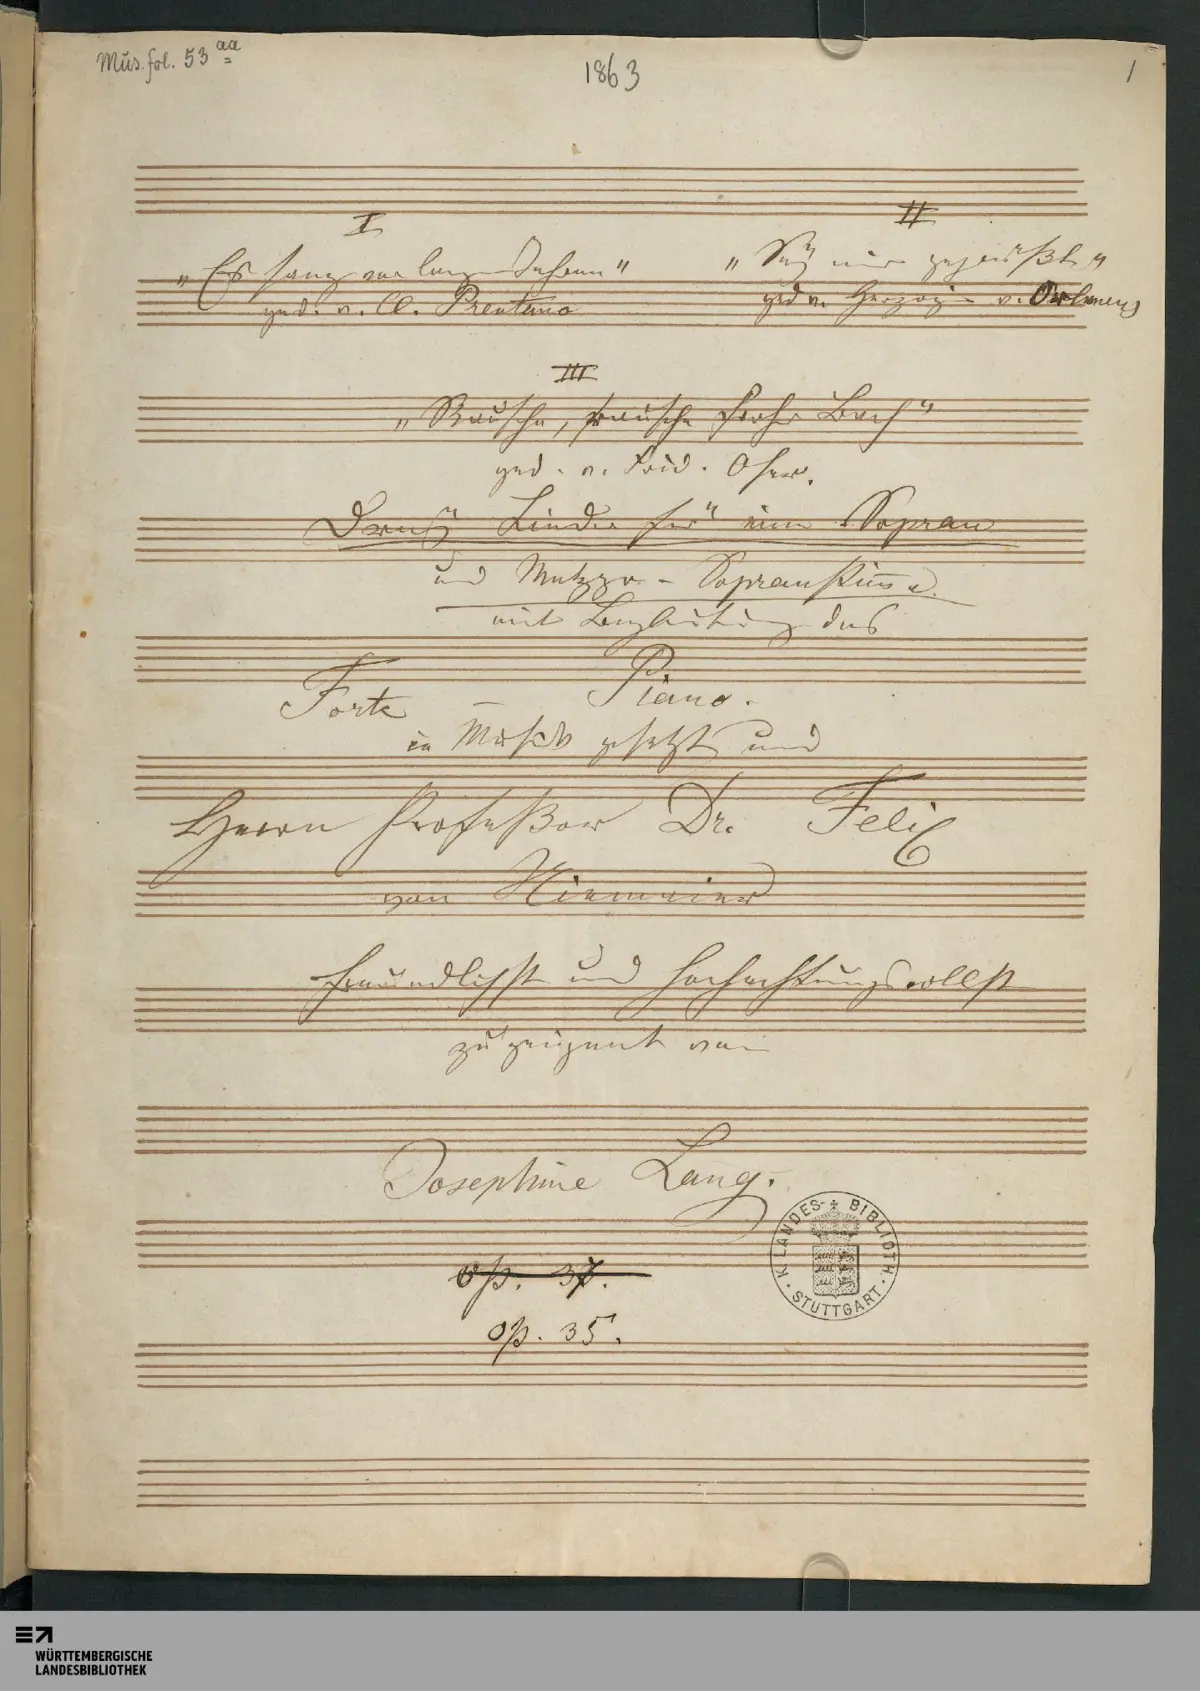 Mus. fol. 53 aa
1863
1
I
„Es sang vor langen Jahren"
ged. v. Cl. Brentano
II
„Sey mir gegrüßt"
ged v. Herzogin v. Orleans
III
„Rausche, rausche froher Bach"
ged. v. Frid. Oser.
Drey Lieder für eine Sopran
und Mezzo-Sopranstimme.
mit Begleitung des
Forte – Piano.
in Musik gesetzt und
Herrn Professor Dr. Felix
von Niemeier
freundlichst und hochachtungsvollst
zugeeignet von
Josephine Lang.
op. 37.
op. 35.
K. LANDES-BIBLIOTH. STUTTGART.
WÜRTTEMBERGISCHE
LANDESBIBLIOTHEK